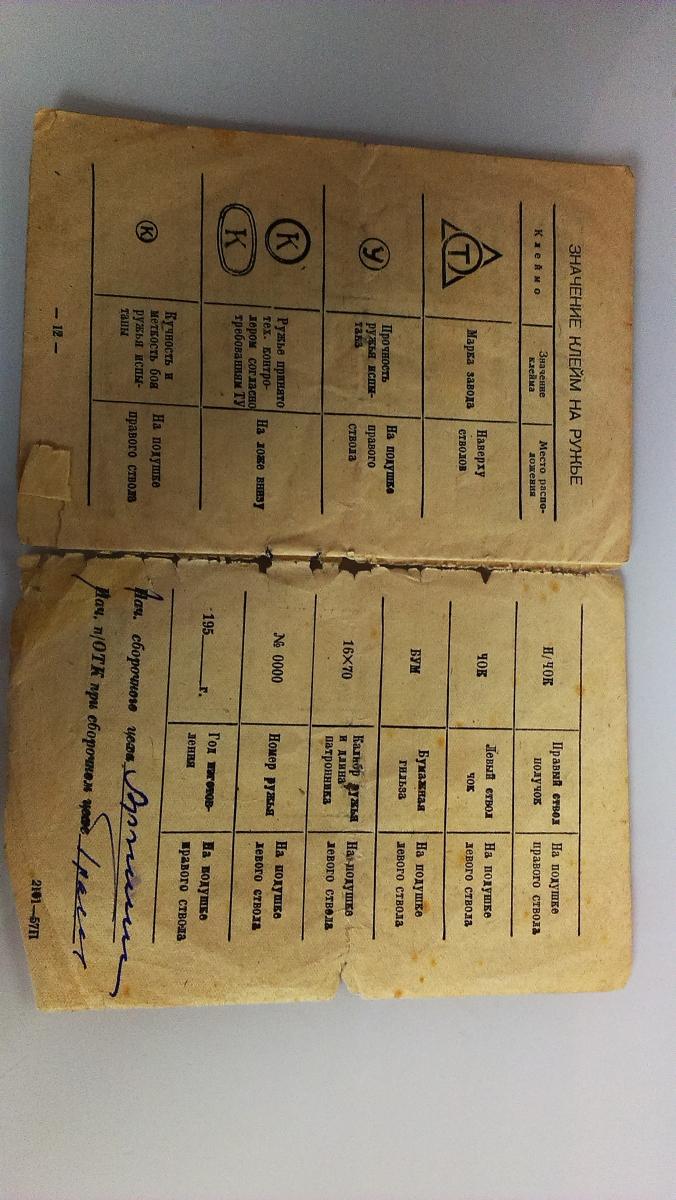 ЗНАЧЕНИЕ КЛЕЙМ НА РУЖЬЕ
Клеймо
Значение
клейма
Место распо-
ложения
Т
Марка завода
Наверху
стволов
У
Прочность
ружья испы-
тана
На подушке
правого
ствола
К
К
Ружье принято
тех. контро-
лером согласно
требованиям ТУ
На ложе внизу
К
Кучность и
меткость боя
ружья испы-
таны
На подушке
правого ствола
— 12 —
П/ЧОК
Правый ствол
получок
На подушке
правого ствола
ЧОК
Левый ствол
чок
На подушке
левого ствола
БУМ
Бумажная
гильза
На подушке
левого ствола
16×70
Калибр ружья
и длина
патронника
На подушке
левого ствола
№ 0000
Номер ружья
На подушке
левого ствола
195 г.
Год изготов-
ления
На подушке
правого ствола
Нач. сборочного цеха
Нач. п/ОТК при сборочном цехе
2101—57П